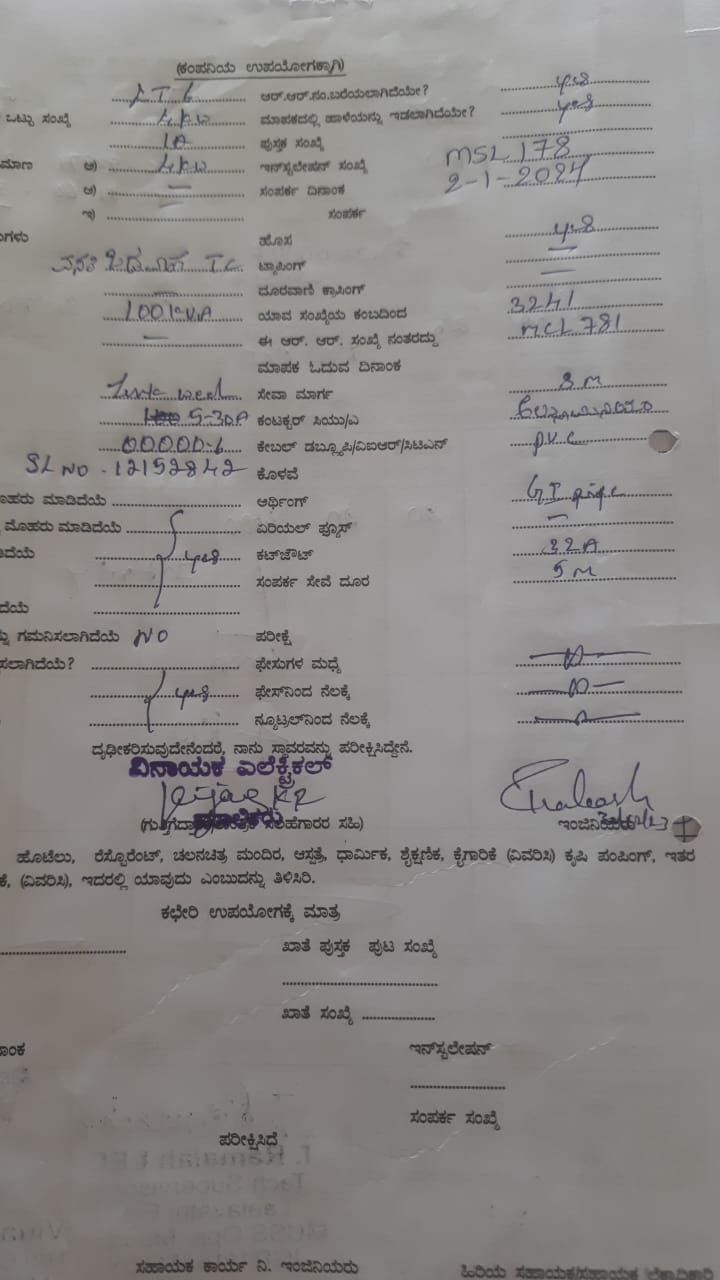 (ಕಂಪನಿಯ ಉಪಯೋಗಕ್ಕಾಗಿ)
ಆರ್.ಆರ್.ನಂ.ಬರೆಯಲಾಗಿದೆಯೇ? yes
ಒಟ್ಟು ಸಂಖ್ಯೆ 4KW ಮಾಪಕದಲ್ಲಿ ಹಾಳೆಯನ್ನು ಇಡಲಾಗಿದೆಯೇ? yes
ಪುಸ್ತಕ ಸಂಖ್ಯೆ
ಮಾಣ ಅ) 4KW ಇನ್‌ಸ್ಟಲೇಷನ್ ಸಂಖ್ಯೆ MSL 178
ಆ) — ಸಂಪರ್ಕ ದಿನಾಂಕ 2-1-2024
ಇ) ಸಂಪರ್ಕ
ಹೊಸ yes
T.C ಟ್ಯಾಪಿಂಗ್ —
— ದೂರವಾಣಿ ಕ್ರಾಸಿಂಗ್ —
100 KVA ಯಾವ ಸಂಖ್ಯೆಯ ಕಂಬದಿಂದ 3241
— ಈ ಆರ್. ಆರ್. ಸಂಖ್ಯೆ ನಂತರದ್ದು MCL 781
ಮಾಪಕ ಓದುವ ದಿನಾಂಕ
ಸೇವಾ ಮಾರ್ಗ 8 M
5-30A ಕಂಟಕ್ಟರ್ ಸಿಯು/ಎ
00000.6 ಕೇಬಲ್ ಡಬ್ಲ್ಯೂಪಿ/ವಿಐಆರ್/ಸಿಟಿಎಸ್ P.V.C
SL NO - 12152842 ಕೊಳವೆ
ೊಹರು ಮಾಡಿದೆಯೆ ಆರ್ಥಿಂಗ್ GI pipe
ಮೊಹರು ಮಾಡಿದೆಯೆ ಏರಿಯಲ್ ಫ್ಯೂಸ್ —
ದೆಯೆ yes ಕಟ್‌ಔಟ್ 32A
ಸಂಪರ್ಕ ಸೇವೆ ದೂರ 5 M
ದೆಯೆ
ಗಮನಿಸಲಾಗಿದೆಯೆ NO ಪರೀಕ್ಷೆ
ಸಲಾಗಿದೆಯೆ? ಫೇಸುಗಳ ಮಧ್ಯೆ
yes ಫೇಸ್‌ನಿಂದ ನೆಲಕ್ಕೆ
ನ್ಯೂಟ್ರಲ್‌ನಿಂದ ನೆಲಕ್ಕೆ
ದೃಢೀಕರಿಸುವುದೇನೆಂದರೆ, ನಾನು ಸ್ಥಾವರವನ್ನು ಪರೀಕ್ಷಿಸಿದ್ದೇನೆ.
ವಿನಾಯಕ ಎಲೆಕ್ಟ್ರಿಕಲ್
ಮಾಲೀಕರು
ಸಲಹೆಗಾರರ ಸಹಿ) ಇಂಜಿನಿಯರು
ಹೊಟೇಲು, ರೆಸ್ಟೊರೆಂಟ್, ಚಲನಚಿತ್ರ ಮಂದಿರ, ಆಸ್ಪತ್ರೆ, ಧಾರ್ಮಿಕ, ಶೈಕ್ಷಣಿಕ, ಕೈಗಾರಿಕೆ (ವಿವರಿಸಿ) ಕೃಷಿ ಪಂಪಿಂಗ್, ಇತರ
ಕೆ, (ವಿವರಿಸಿ), ಇದರಲ್ಲಿ ಯಾವುದು ಎಂಬುದನ್ನು ತಿಳಿಸಿರಿ.
ಕಛೇರಿ ಉಪಯೋಗಕ್ಕೆ ಮಾತ್ರ
ಖಾತೆ ಪುಸ್ತಕ ಪುಟ ಸಂಖ್ಯೆ
ಖಾತೆ ಸಂಖ್ಯೆ
ಾಂಕ ಇನ್‌ಸ್ಟಲೇಷನ್
ಸಂಪರ್ಕ ಸಂಖ್ಯೆ
ಪರೀಕ್ಷಿಸಿದೆ
ಸಹಾಯಕ ಕಾರ್ಯ ನಿ. ಇಂಜಿನಿಯರು ಹಿರಿಯ ಸಹಾಯಕ/ಸಹಾಯಕ